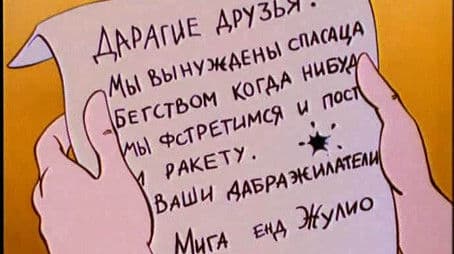 ДАРАГИЕ ДРУЗЬЯ!
МЫ ВЫНУЖДЕНЫ СПАСАЦА
БЕГСТВОМ КОГДА НИБУД
МЫ ФСТРЕТИМСЯ И ПОСТ
И РАКЕТУ.
ВАШИ ДАБРАЖИЛАТЕЛИ
МИГА ЕНД ЖУЛИО